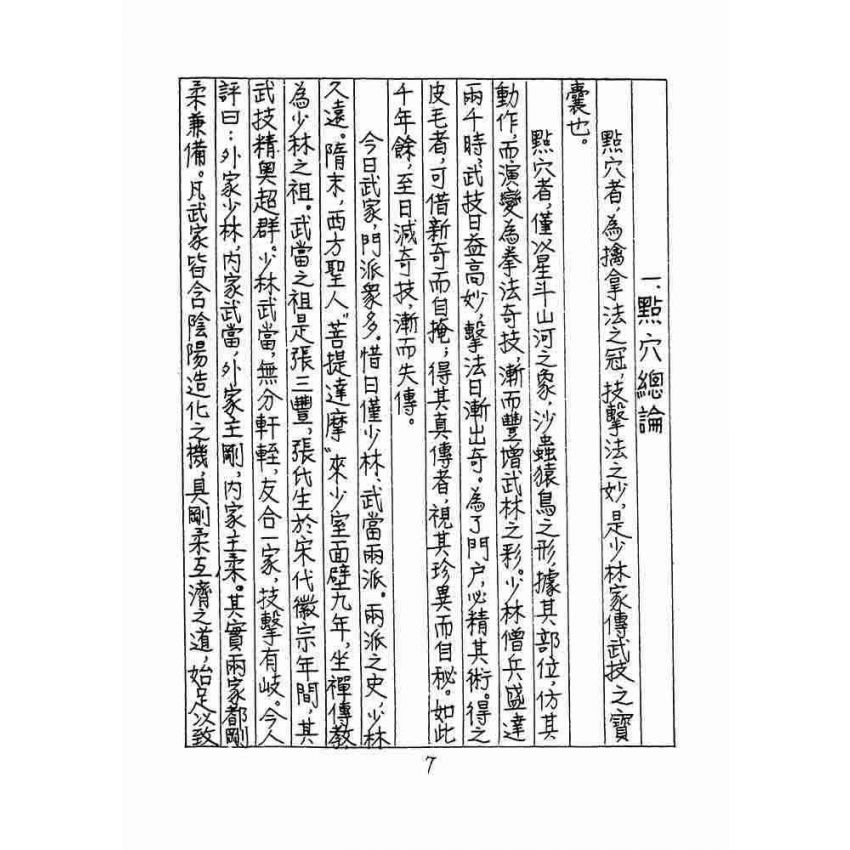 一、點穴總論
點穴者，為擒拿法之冠，技擊法之妙，是少林家傳武技之寶
囊也。
點穴者，僅以星斗山河之象，沙蟲猿鳥之形，據其部位，仿其
動作，而演變為拳法奇技，漸而豐增武林之彩。少林僧兵盛達
兩千時，武技日益高妙，擊法日漸出奇。為了門户，必精其術。得之
皮毛者，可借新奇而自掩；得其真傳者，視其珍異而自秘。如此
千年餘，至日減奇技，漸而失傳。
今日武家，門派衆多。惜日僅少林、武當兩派。兩派之史，少林
久遠。隋末，西方聖人“菩提達摩”來少室面壁九年，坐禪傳教
為少林之祖。武當之祖是張三豐，張氏生於宋代徽宗年間，其
武技精奥超群。少林武當，無分軒輊，友合一家，技擊有歧。今人
評曰：外家少林，内家武當，外家主剛，内家主柔。其實兩家都剛
柔兼備。凡武家皆含陰陽造化之機，具剛柔互濟之道，始足以致
7